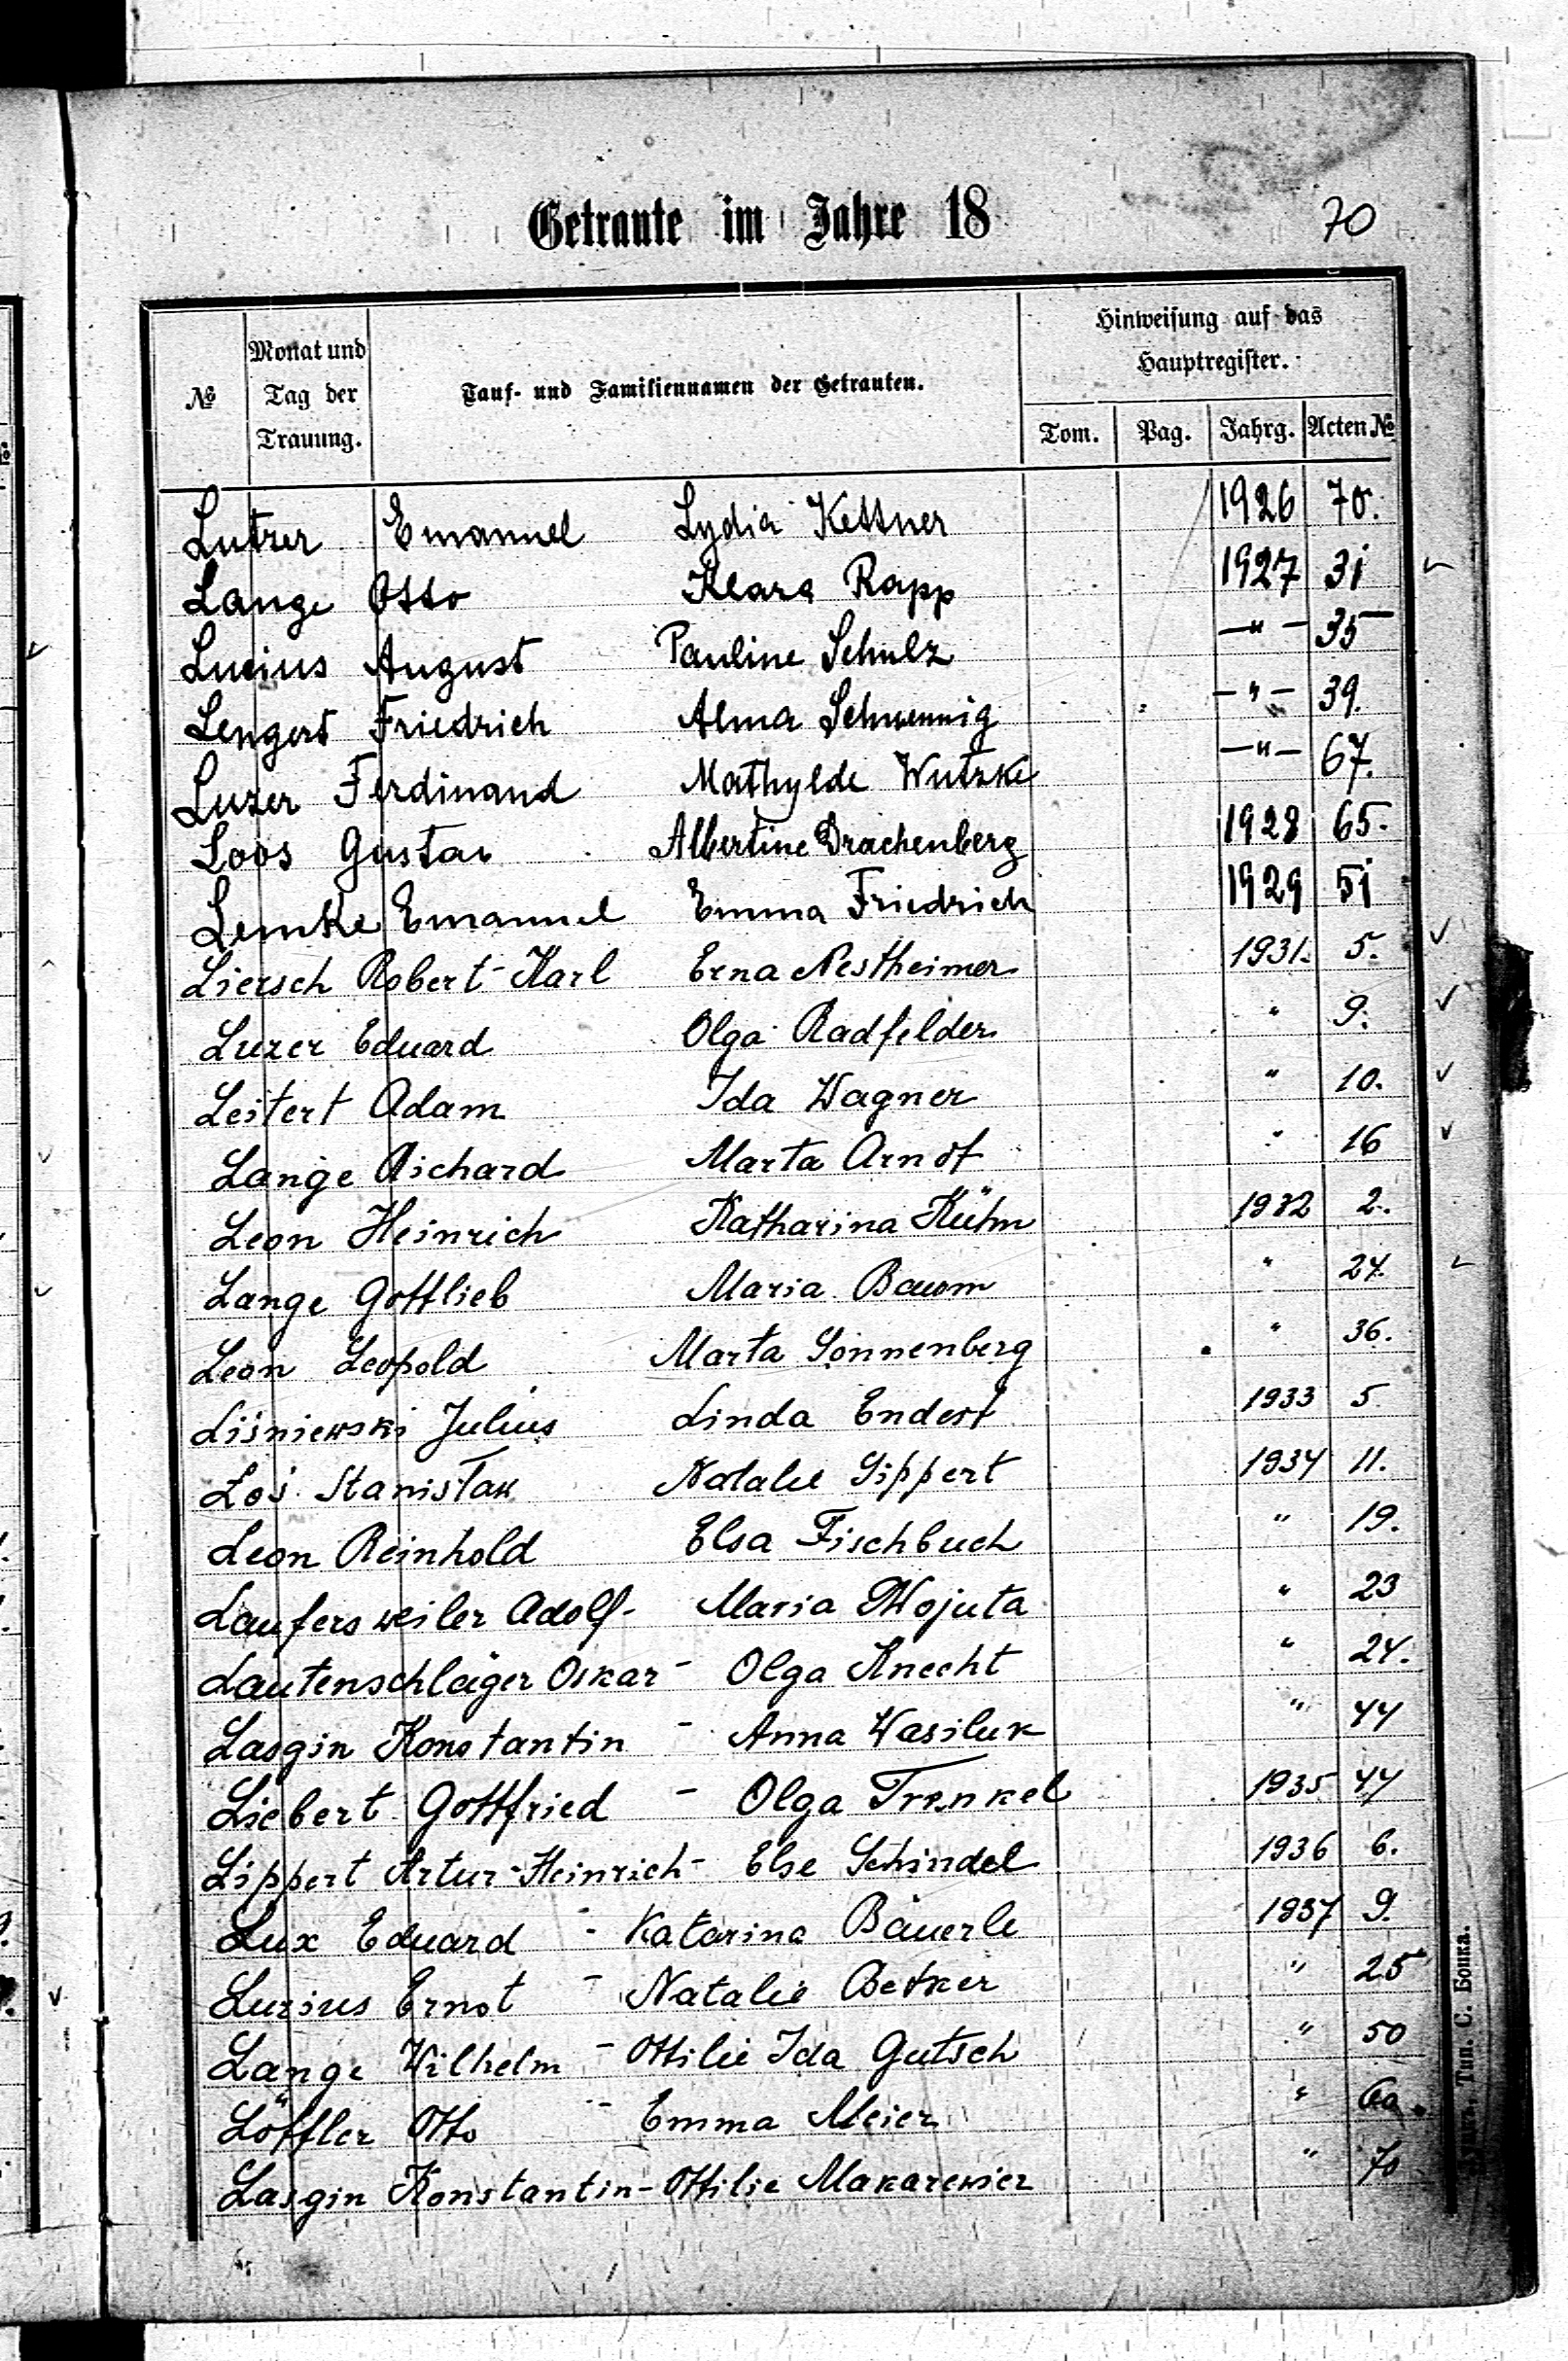 Getraute im Jahre 18
70
№ Monat und Tag der Trauung. Tauf- und Familiennamen der Getrauten. Hinweisung auf das Hauptregister.
Tom. Pag. Jahrg. Acten №
Lutzer Emanuel Lydia Kettner 1926 70.
Lange Otto Klara Rapp 1927 31
Lucius August Pauline Schulz —"— 35
Lengert Friedrich Alma —"— 39.
Luzer Ferdinand Mathylde Wutzke —"— 67.
Loos Gustav Albertine Drachenberg 1928 65.
Lemke Emanuel Emma Friedrich 1929 51
Liersch Robert-Karl Erna Nestheimer 1931. 5.
Luzer Eduard Olga Radfelder " 9.
Leitert Adam Ida Wagner " 10.
Lange Richard Marta Arndt " 16
Leon Heinrich Katharina Kühn 1932 2.
Lange Gottlieb Maria Baum " 24.
Leon Leopold Marta Sonnenberg " 36.
Liśniewski Julius Linda Endert 1933 5
Łoś Stanisław Natalie Lippert 1934 11.
Leon Reinhold Elsa Fischbuch " 19.
Laufersweiler Adolf - Maria Wojuta " 23
Lautenschläger Oskar - Olga Knecht " 24.
Lasgin Konstantin - Anna Wasiluk " 44
Liebert Gottfried - Olga Trenkel 1935 44
Lippert Artur-Heinrich - Else Schindel 1936 6.
Lux Eduard - Katarina Bäuerle 1937 9.
Luzius Ernst - Natalie Oetker " 25
Lange Wilhelm - Ottilie Ida Gutsch " 50
Löffler Otto - Emma Meier " 60.
Lasgin Konstantin - Ottilie Makarewicz " 70
Тип. С. Бонка.